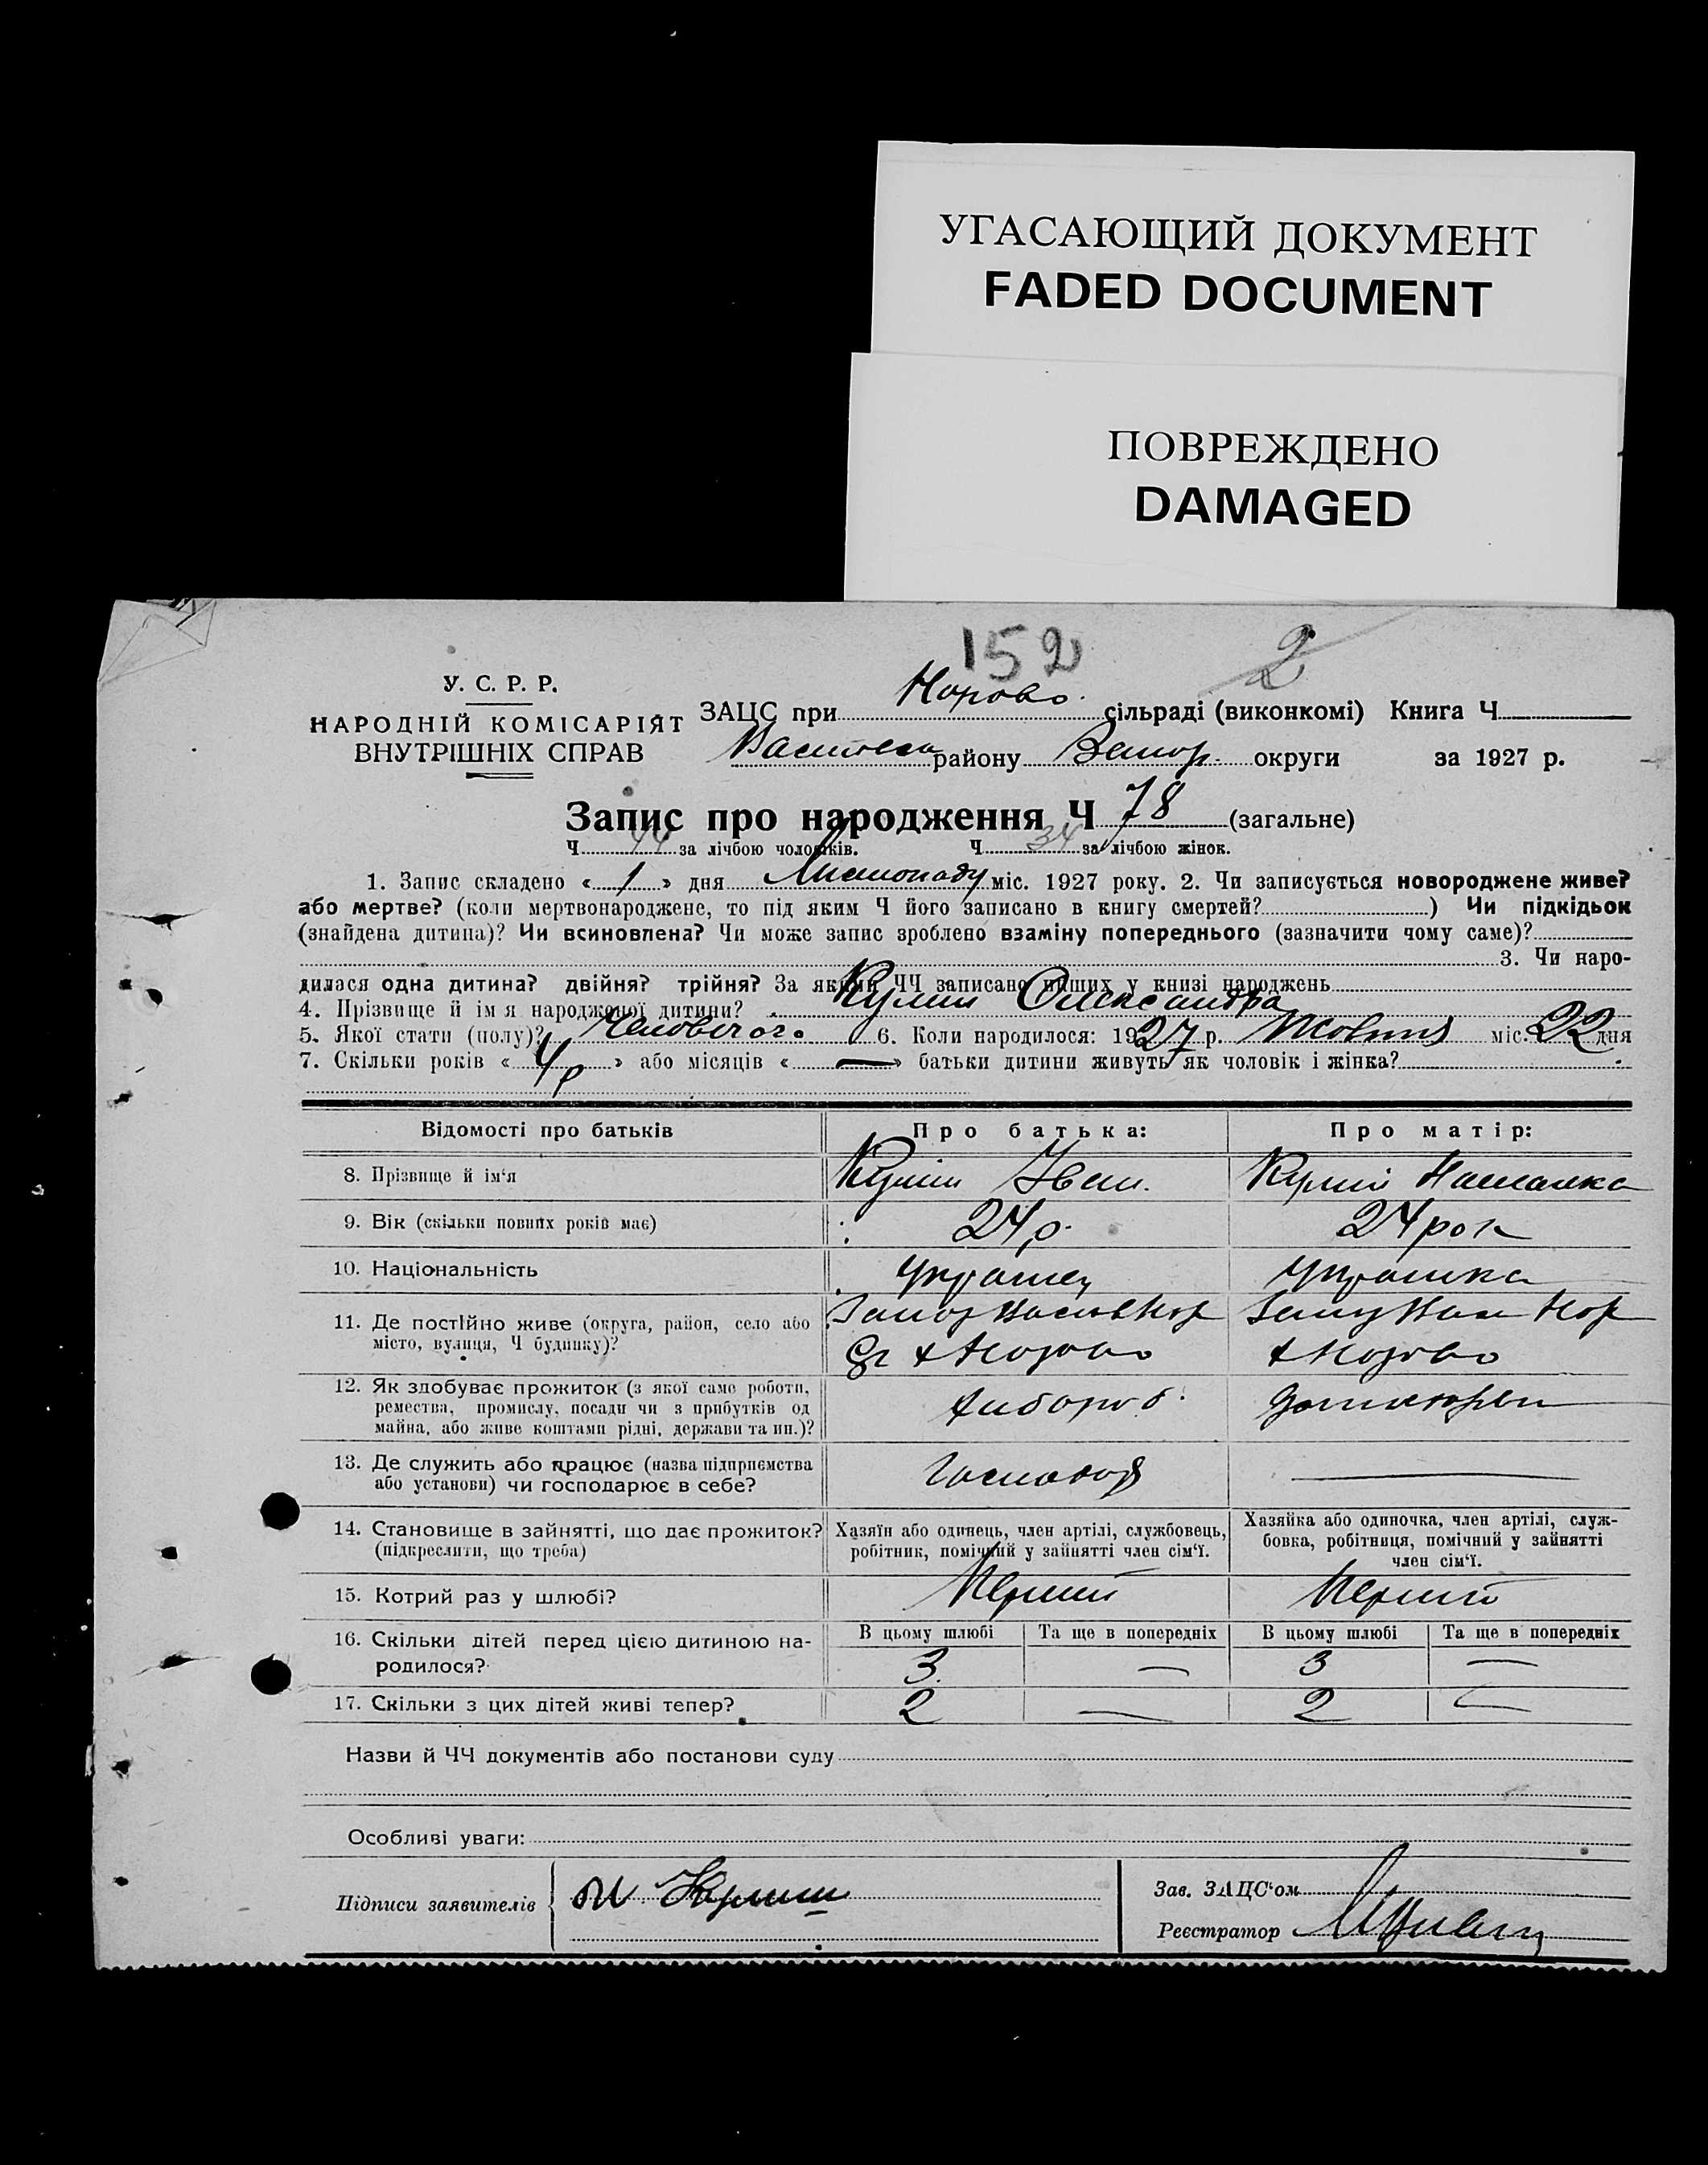 УГАСАЮЩИЙ ДОКУМЕНТ
FADED DOCUMENT
ПОВРЕЖДЕНО
DAMAGED
152 2
У. С. Р. Р.
НАРОДНІЙ КОМІСАРІЯТ
ВНУТРІШНІХ СПРАВ
ЗАЦС при сільраді (виконкомі) Книга Ч
району Запор. округи за 1927 р.
Запис про народження Ч 78 (загальне)
Ч 44 за лічбою чоловіків. Ч 34 за лічбою жінок.
1. Запис складено « 1 » дня Листопаду міс. 1927 року. 2. Чи записується новороджене живе?
або мертве? (коли мертвонароджене, то під яким Ч його записано в книгу смертей? ) Чи підкідьок
(знайдена дитина)? Чи всиновлена? Чи може запис зроблено взаміну попереднього (зазначити чому саме)?
3. Чи наро-
дилася одна дитина? двійня? трійня? За якими ЧЧ записано інших у книзі народжень
4. Прізвище й ім'я народженої дитини? Олександра
5. Якої стати (полу)? 6. Коли народилося: 1927 р. Жовтня міс. 22 дня
7. Скільки років « 4 р » або місяців « — » батьки дитини живуть як чоловік і жінка?
Відомості про батьків Про батька: Про матір:
8. Прізвище й ім‘я Іван Наталка
9. Вік (скільки повних років має) 24 р. 24 рок
10. Національність Українец Українка
11. Де постійно живе (округа, район, село або
місто, вулиця, Ч будинку)?
12. Як здобуває прожиток (з якої саме роботи,
ремества, промислу, посади чи з прибутків од
майна, або живе коштами рідні, держави та ин.)?
Хлібороб
13. Де служить або працює (назва підприємства
або установи) чи господарює в себе?
Господар —
14. Становище в зайнятті, що дає прожиток?
(підкреслити, що треба)
Хазяїн або одинець, член артілі, службовець,
робітник, помічний у зайнятті член сім‘ї.
Хазяйка або одиночка, член артілі, служ-
бовка, робітниця, помічний у зайнятті
член сім‘ї.
15. Котрий раз у шлюбі? Перший Перший
В цьому шлюбі Та ще в попередніх В цьому шлюбі Та ще в попередніх
16. Скільки дітей перед цією дитиною на-
родилося? 3 — 3 —
17. Скільки з цих дітей живі тепер? 2 — 2 —
Назви й ЧЧ документів або постанови суду
Особливі уваги:
Підписи заявителів
Зав. ЗАЦС‘ом
Реєстратор